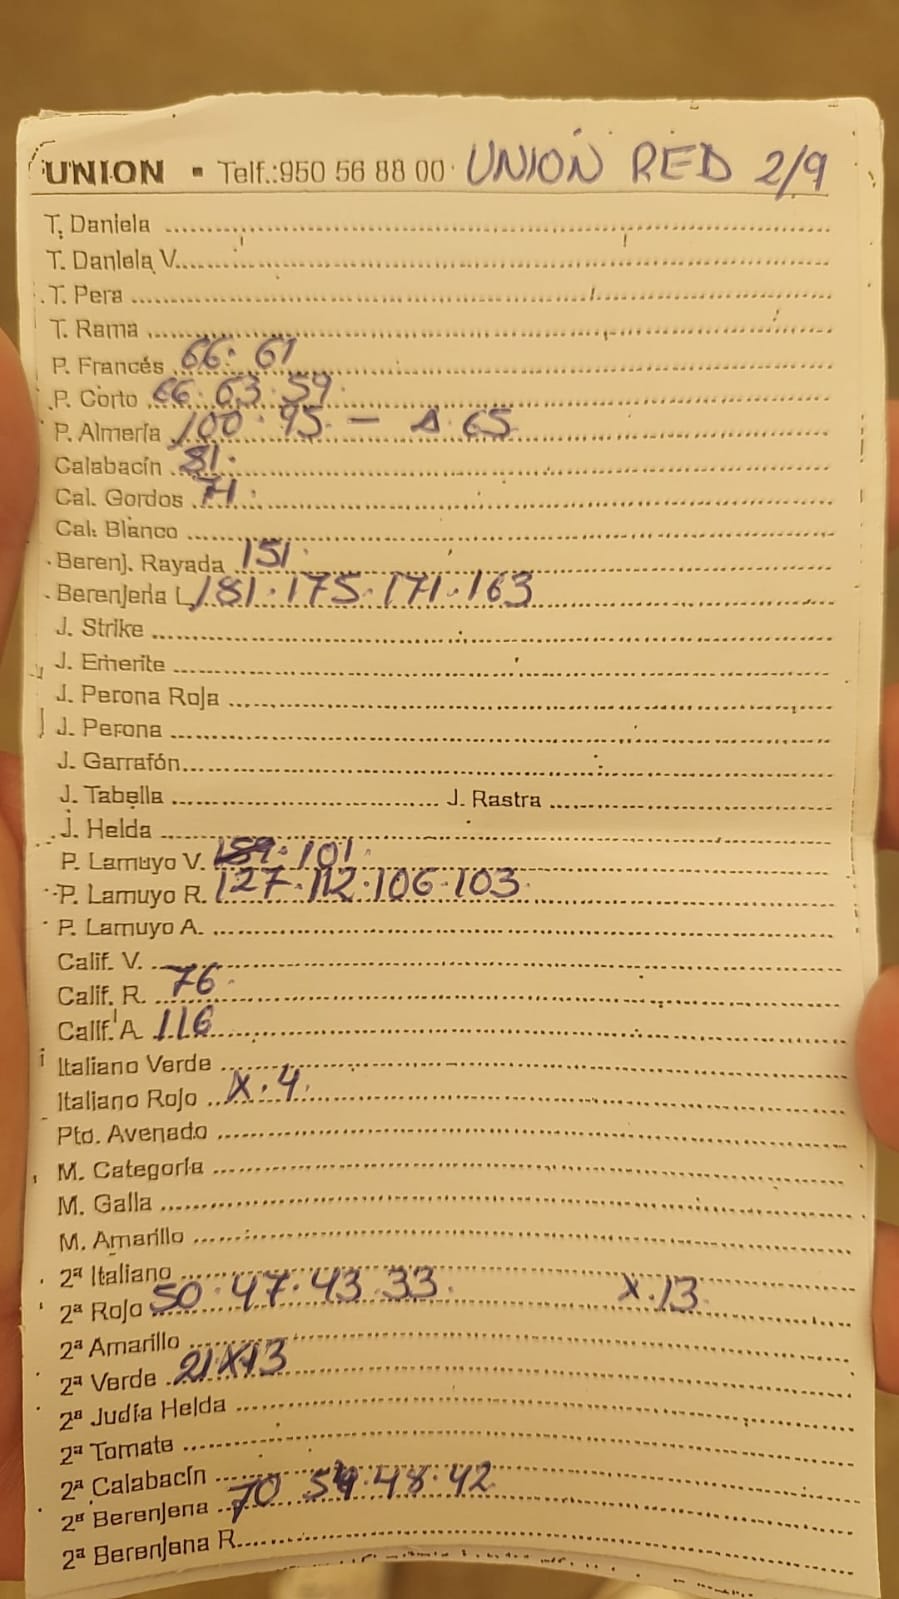 UNION ▪ Telf.:950 56 88 00 UNION RED 2/9
T. Daniela
T. Daniela V.
T. Pera
T. Rama
P. Francés 66. 61
P. Corto 66. 63. 59.
P. Almería 100. 95. — Δ 65
Calabacín 81.
Cal. Gordos 71.
Cal. Blanco
Berenj. Rayada 151.
Berenjena L 181. 175. 171. 163
J. Strike
J. Emerite
J. Perona Roja
J. Perona
J. Garrafón
J. Tabella J. Rastra
J. Helda
P. Lamuyo V. 101.
P. Lamuyo R. 127. 112. 106. 103.
P. Lamuyo A.
Calif. V.
Calif. R. 76.
Calif. A. 116
Italiano Verde
Italiano Rojo X. 4.
Pto. Avenado
M. Categoría
M. Galla
M. Amarillo
2ª Italiano
2ª Rojo 50. 47. 43. 33. X. 13.
2ª Amarillo
2ª Verde 21 X 13
2ª Judía Helda
2ª Tomate
2ª Calabacín
2ª Berenjena 70 54. 48. 42
2ª Berenjena R.